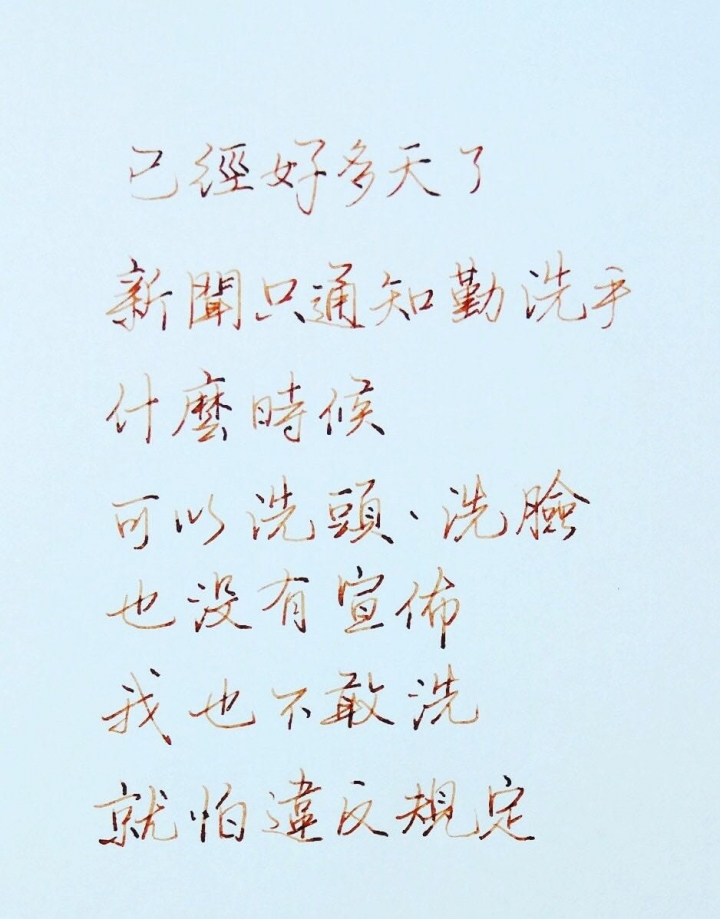 已經好多天了
新聞只通知勤洗手
什麼時候
可以洗頭、洗臉
也沒有宣佈
我也不敢洗
就怕違反規定